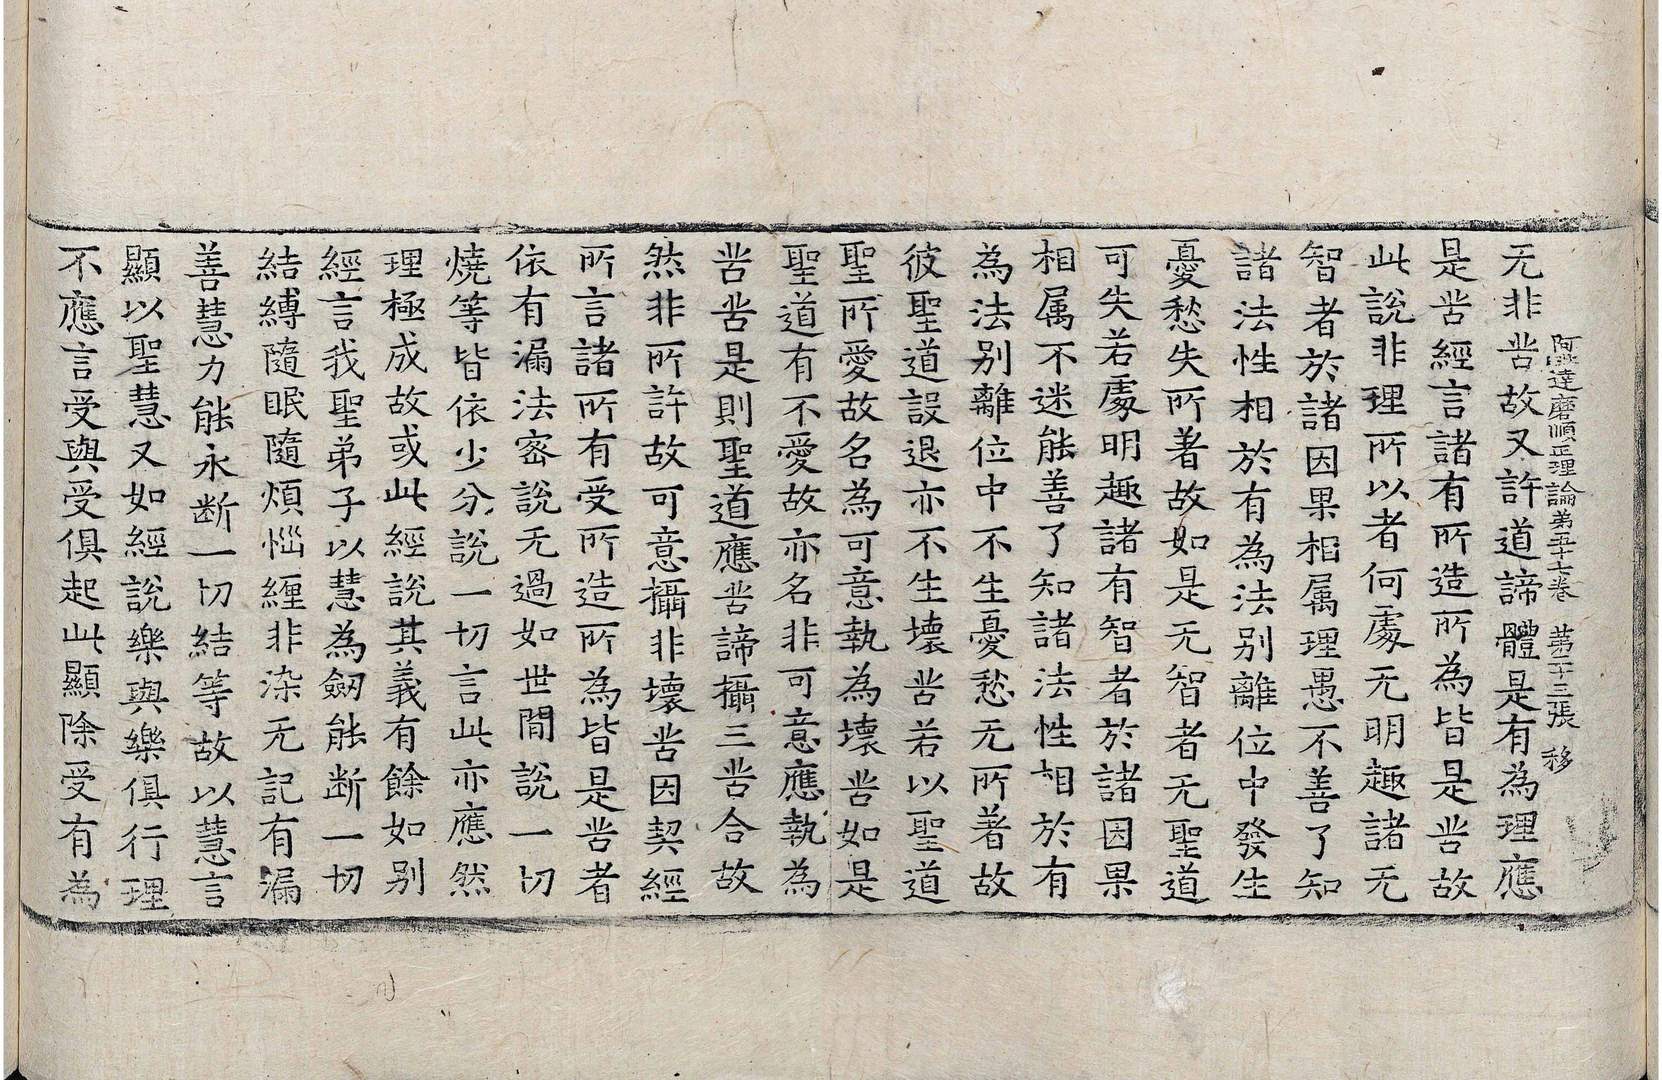 阿毗達磨順正理論第五十七卷 第二十三張 移
无非苦故又許道諦體是有為理應
是苦經言諸有所造所為皆是苦故
此說非理所以者何處无明趣諸无
智者於諸因果相属理愚不善了知
諸法性相於有為法别離位中發生
憂愁失所著故如是无智者无聖道
可失若處明趣諸有智者於諸因果
相属不迷能善了知諸法性相於有
為法别離位中不生憂愁无所著故
彼聖道設退亦不生壞苦若以聖道
聖所愛故名為可意執為壞苦如是
聖道有不愛故亦名非可意應執為
苦苦是則聖道應苦諦攝三苦合故
然非所許故可意攝非壞苦因契經
所言諸所有受所造所為皆是苦者
依有漏法密說无過如世間說一切
燒等皆依少分說一切言此亦應然
理極成故或此經說其義有餘如别
經言我聖弟子以慧為劒能断一切
結縛隨眠隨煩惱纒非染无記有漏
善慧力能永断一切結等故以慧言
顯以聖慧又如經說樂與樂俱行理
不應言受與受俱起此顯除受有為